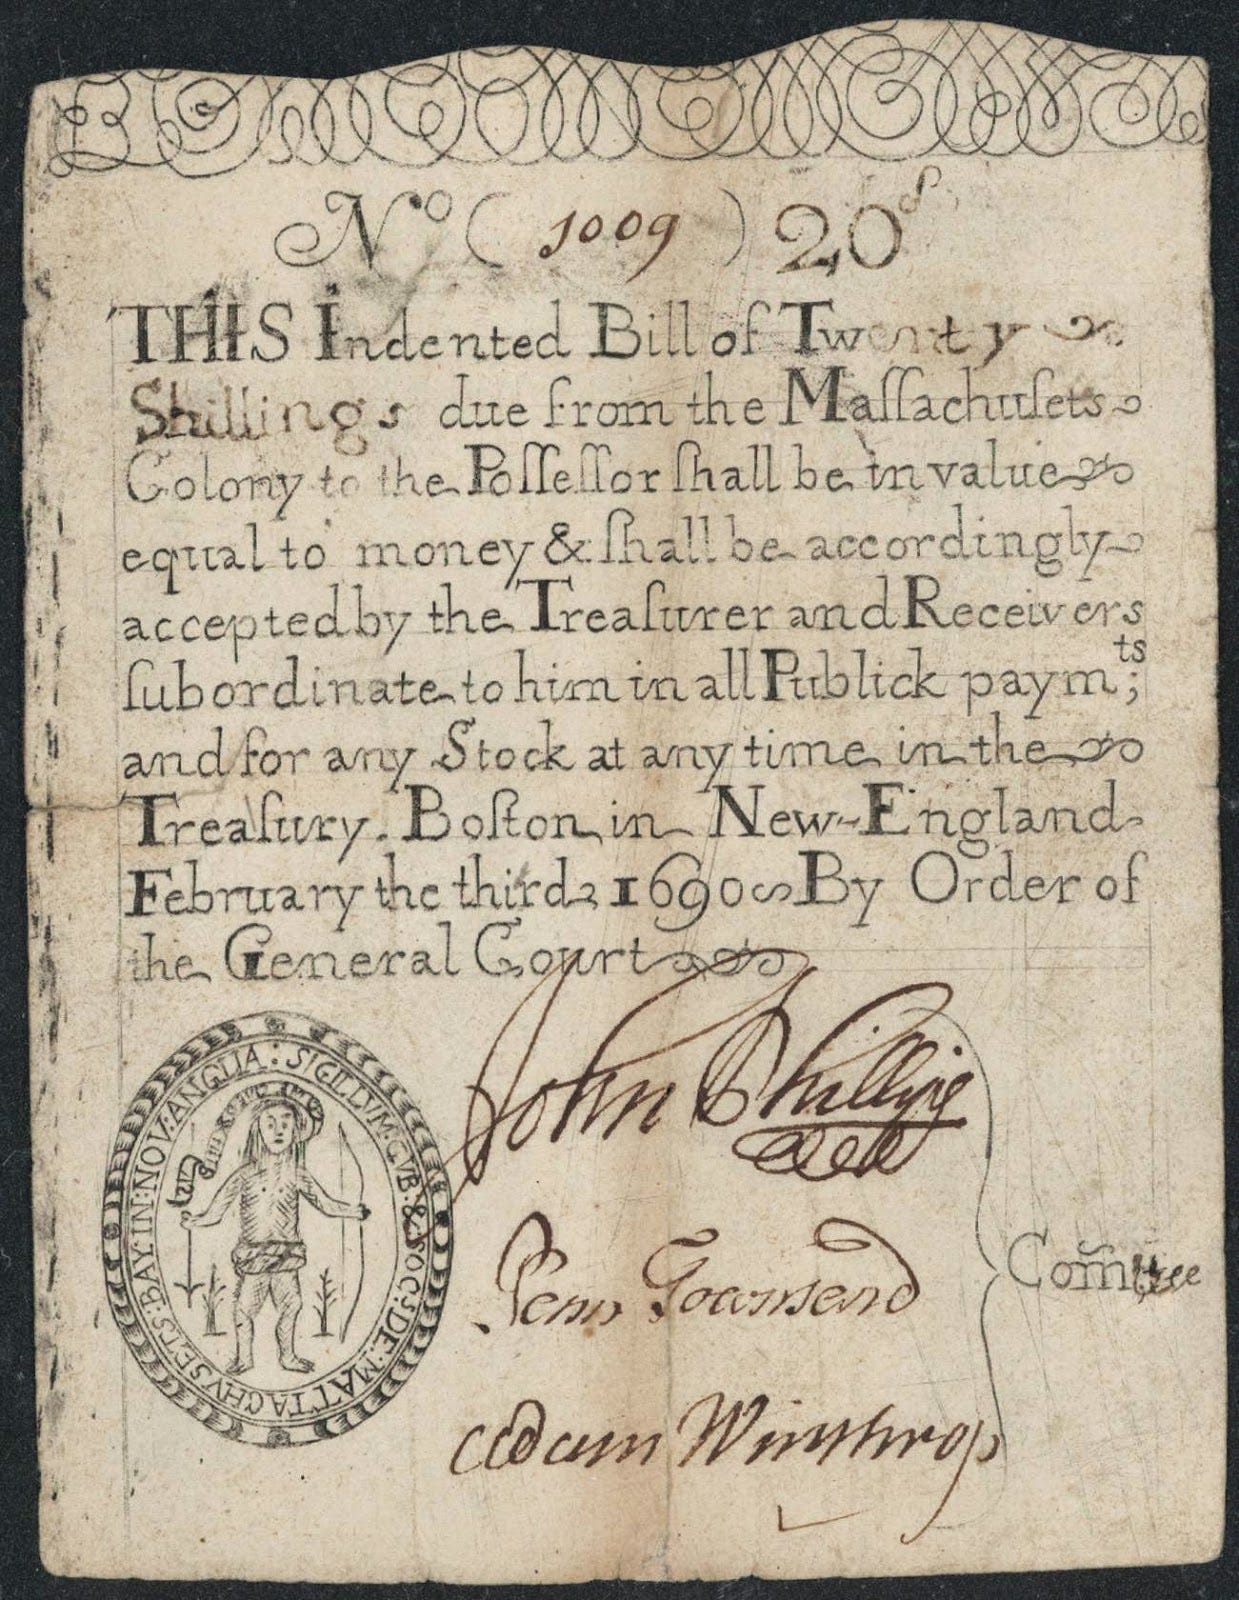 Nº ( 1009 ) 20ˢ
THIS Indented Bill of Twenty
Shillings due from the Maſſachuſets
Colony to the Poſſeſſor ſhall be in value
equal to money & ſhall be accordingly
accepted by the Treaſurer and Receivers
ſubordinate to him in all Publick paymᵗˢ;
and for any Stock at any time in the
Treaſury. Boſton in New-England
February the third 1690 By Order of
the General Court
SIGILLVM: GVB: & SOC: DE: MATTACHVSETS: BAY: IN: NOV: ANGLIA:
John Phillips
Penn Townsend
Adam Winthrop
Com̃ittee